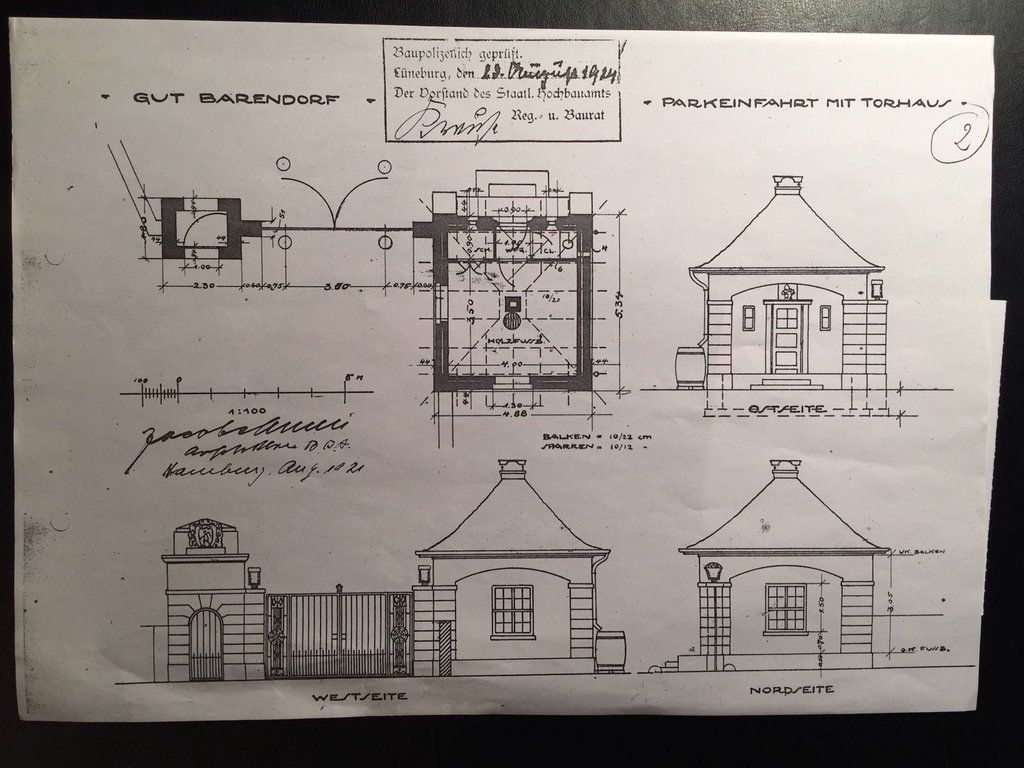 Baupolizeilich geprüft.
Lüneburg, den 29. August 1921
Der Vorstand des Staatl. Hochbauamts
Reg.- u. Baurat
Krause
- GUT BARENDORF -
- PARKEINFAHRT MIT TORHAUS -
2
0.90
44
1.00
2.30
0.60
0.75
3.80
0.75
0.60
0.90
W.F.
CL.
3.50
18/20
HOLZFUSSB.
5.34
44
4.00
44
44
1.30
4.88
100 0 5 M
1:100
Architekt B.D.A.
Hamburg, Aug. 1921
BALKEN = 10/22 cm
SPARREN = 10/12 "
OSTSEITE
UK. BALKEN
1.50
3.05
O.K. FUSSB.
WESTSEITE
NORDSEITE